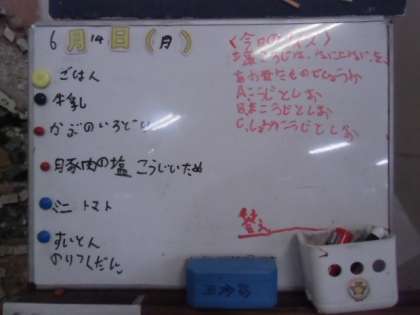 6月14日(月)
ごはん
牛乳
かぶのいろどり
豚肉の塩こうじいため
ミニトマト
すいとん
のりつくだに
<今日のクイズ>
塩こうじは、なにとなにを
あわせたものでしょうか
A.こうじとしお
B.まこうじとしお
C.しょうがこうじとしお
答え